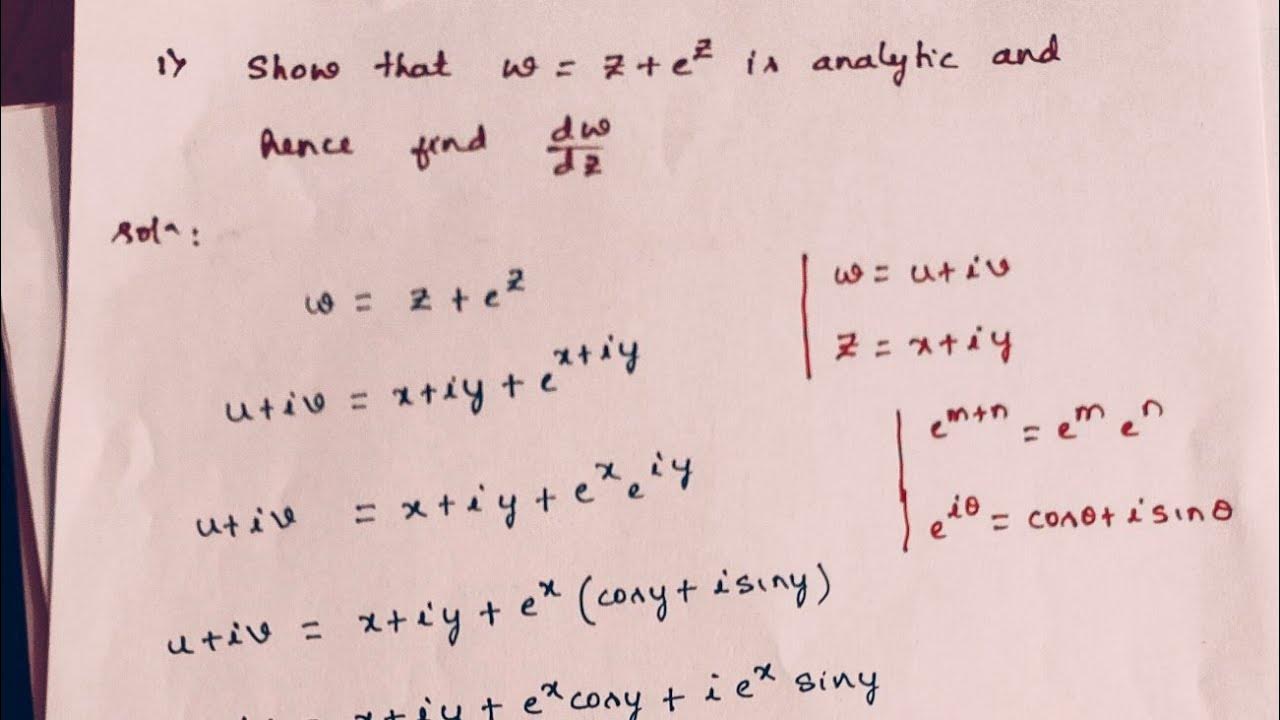 1) Show that w = z + e^z is analytic and
hence find dw/dz
Soln:
w = z + e^z
u+iv = x+iy + e^{x+iy}
u+iv = x+iy + e^x e^{iy}
u+iv = x+iy + e^x (cosy + i siny)
= x+iy + e^x cosy + i e^x siny
w = u+iv
z = x+iy
e^{m+n} = e^m e^n
e^{iθ} = cosθ + i sinθ